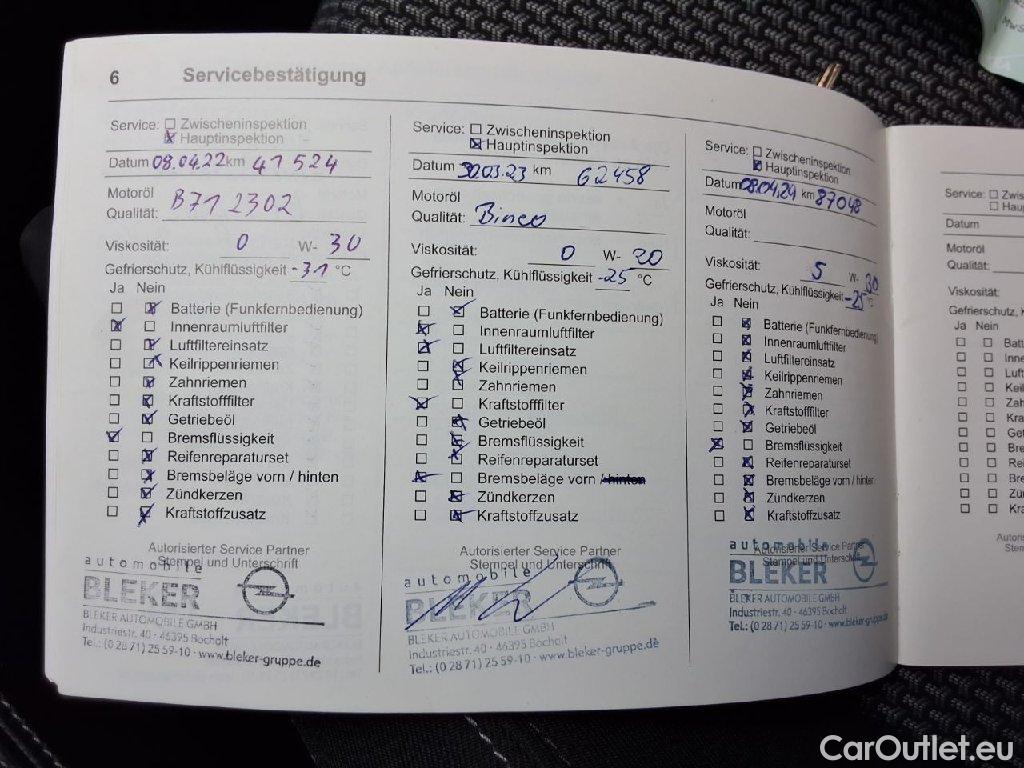 6 Servicebestätigung
Service: Zwischeninspektion
Hauptinspektion
Datum 08.04.22 km 41 524
Motoröl
Qualität: B71 2302
Viskosität: 0 W- 30
Gefrierschutz, Kühlflüssigkeit -31 °C
Ja Nein
Batterie (Funkfernbedienung)
Innenraumluftfilter
Luftfiltereinsatz
Keilrippenriemen
Zahnriemen
Kraftstofffilter
Getriebeöl
Bremsflüssigkeit
Reifenreparaturset
Bremsbeläge vorn / hinten
Zündkerzen
Kraftstoffzusatz
Autorisierter Service Partner
Stempel und Unterschrift
automobile
BLEKER
BLEKER AUTOMOBILE GMBH
Industriestr. 40 · 46395 Bocholt
Tel.: (0 28 71) 25 59-10 · www.bleker-gruppe.de
Service: Zwischeninspektion
Hauptinspektion
Datum 30.03.23 km 62458
Motoröl
Qualität:
Viskosität: 0 W- 20
Gefrierschutz, Kühlflüssigkeit -25 °C
Ja Nein
Batterie (Funkfernbedienung)
Innenraumluftfilter
Luftfiltereinsatz
Keilrippenriemen
Zahnriemen
Kraftstofffilter
Getriebeöl
Bremsflüssigkeit
Reifenreparaturset
Bremsbeläge vorn / hinten
Zündkerzen
Kraftstoffzusatz
Autorisierter Service Partner
Stempel und Unterschrift
automobile
BLEKER
BLEKER AUTOMOBILE GMBH
Industriestr. 40 · 46395 Bocholt
Tel.: (0 28 71) 25 59-10 · www.bleker-gruppe.de
Service: Zwischeninspektion
Hauptinspektion
Datum 08.04.24 km 87048
Motoröl
Qualität:
Viskosität: 5 W- 30
Gefrierschutz, Kühlflüssigkeit -25 °C
Ja Nein
Batterie (Funkfernbedienung)
Innenraumluftfilter
Luftfiltereinsatz
Keilrippenriemen
Zahnriemen
Kraftstofffilter
Getriebeöl
Bremsflüssigkeit
Reifenreparaturset
Bremsbeläge vorn / hinten
Zündkerzen
Kraftstoffzusatz
Autorisierter Service Partner
Stempel und Unterschrift
automobile
BLEKER
BLEKER AUTOMOBILE GMBH
Industriestr. 40 · 46395 Bocholt
Tel.: (0 28 71) 25 59-10 · www.bleker-gruppe.de
Service:
Datum
Motoröl
Qualität:
Viskosität:
Gefrierschutz,
Ja Nein
CarOutlet.eu